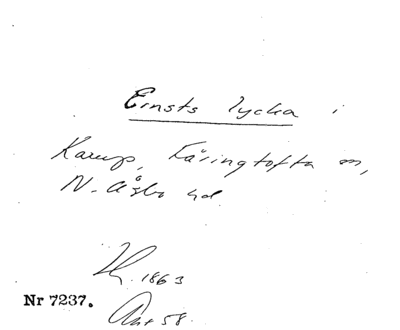 Einsts lycka i
Karup, Färingtofta sn,
N. Åsbo hd
1863
Nr 7237.
Akt 58